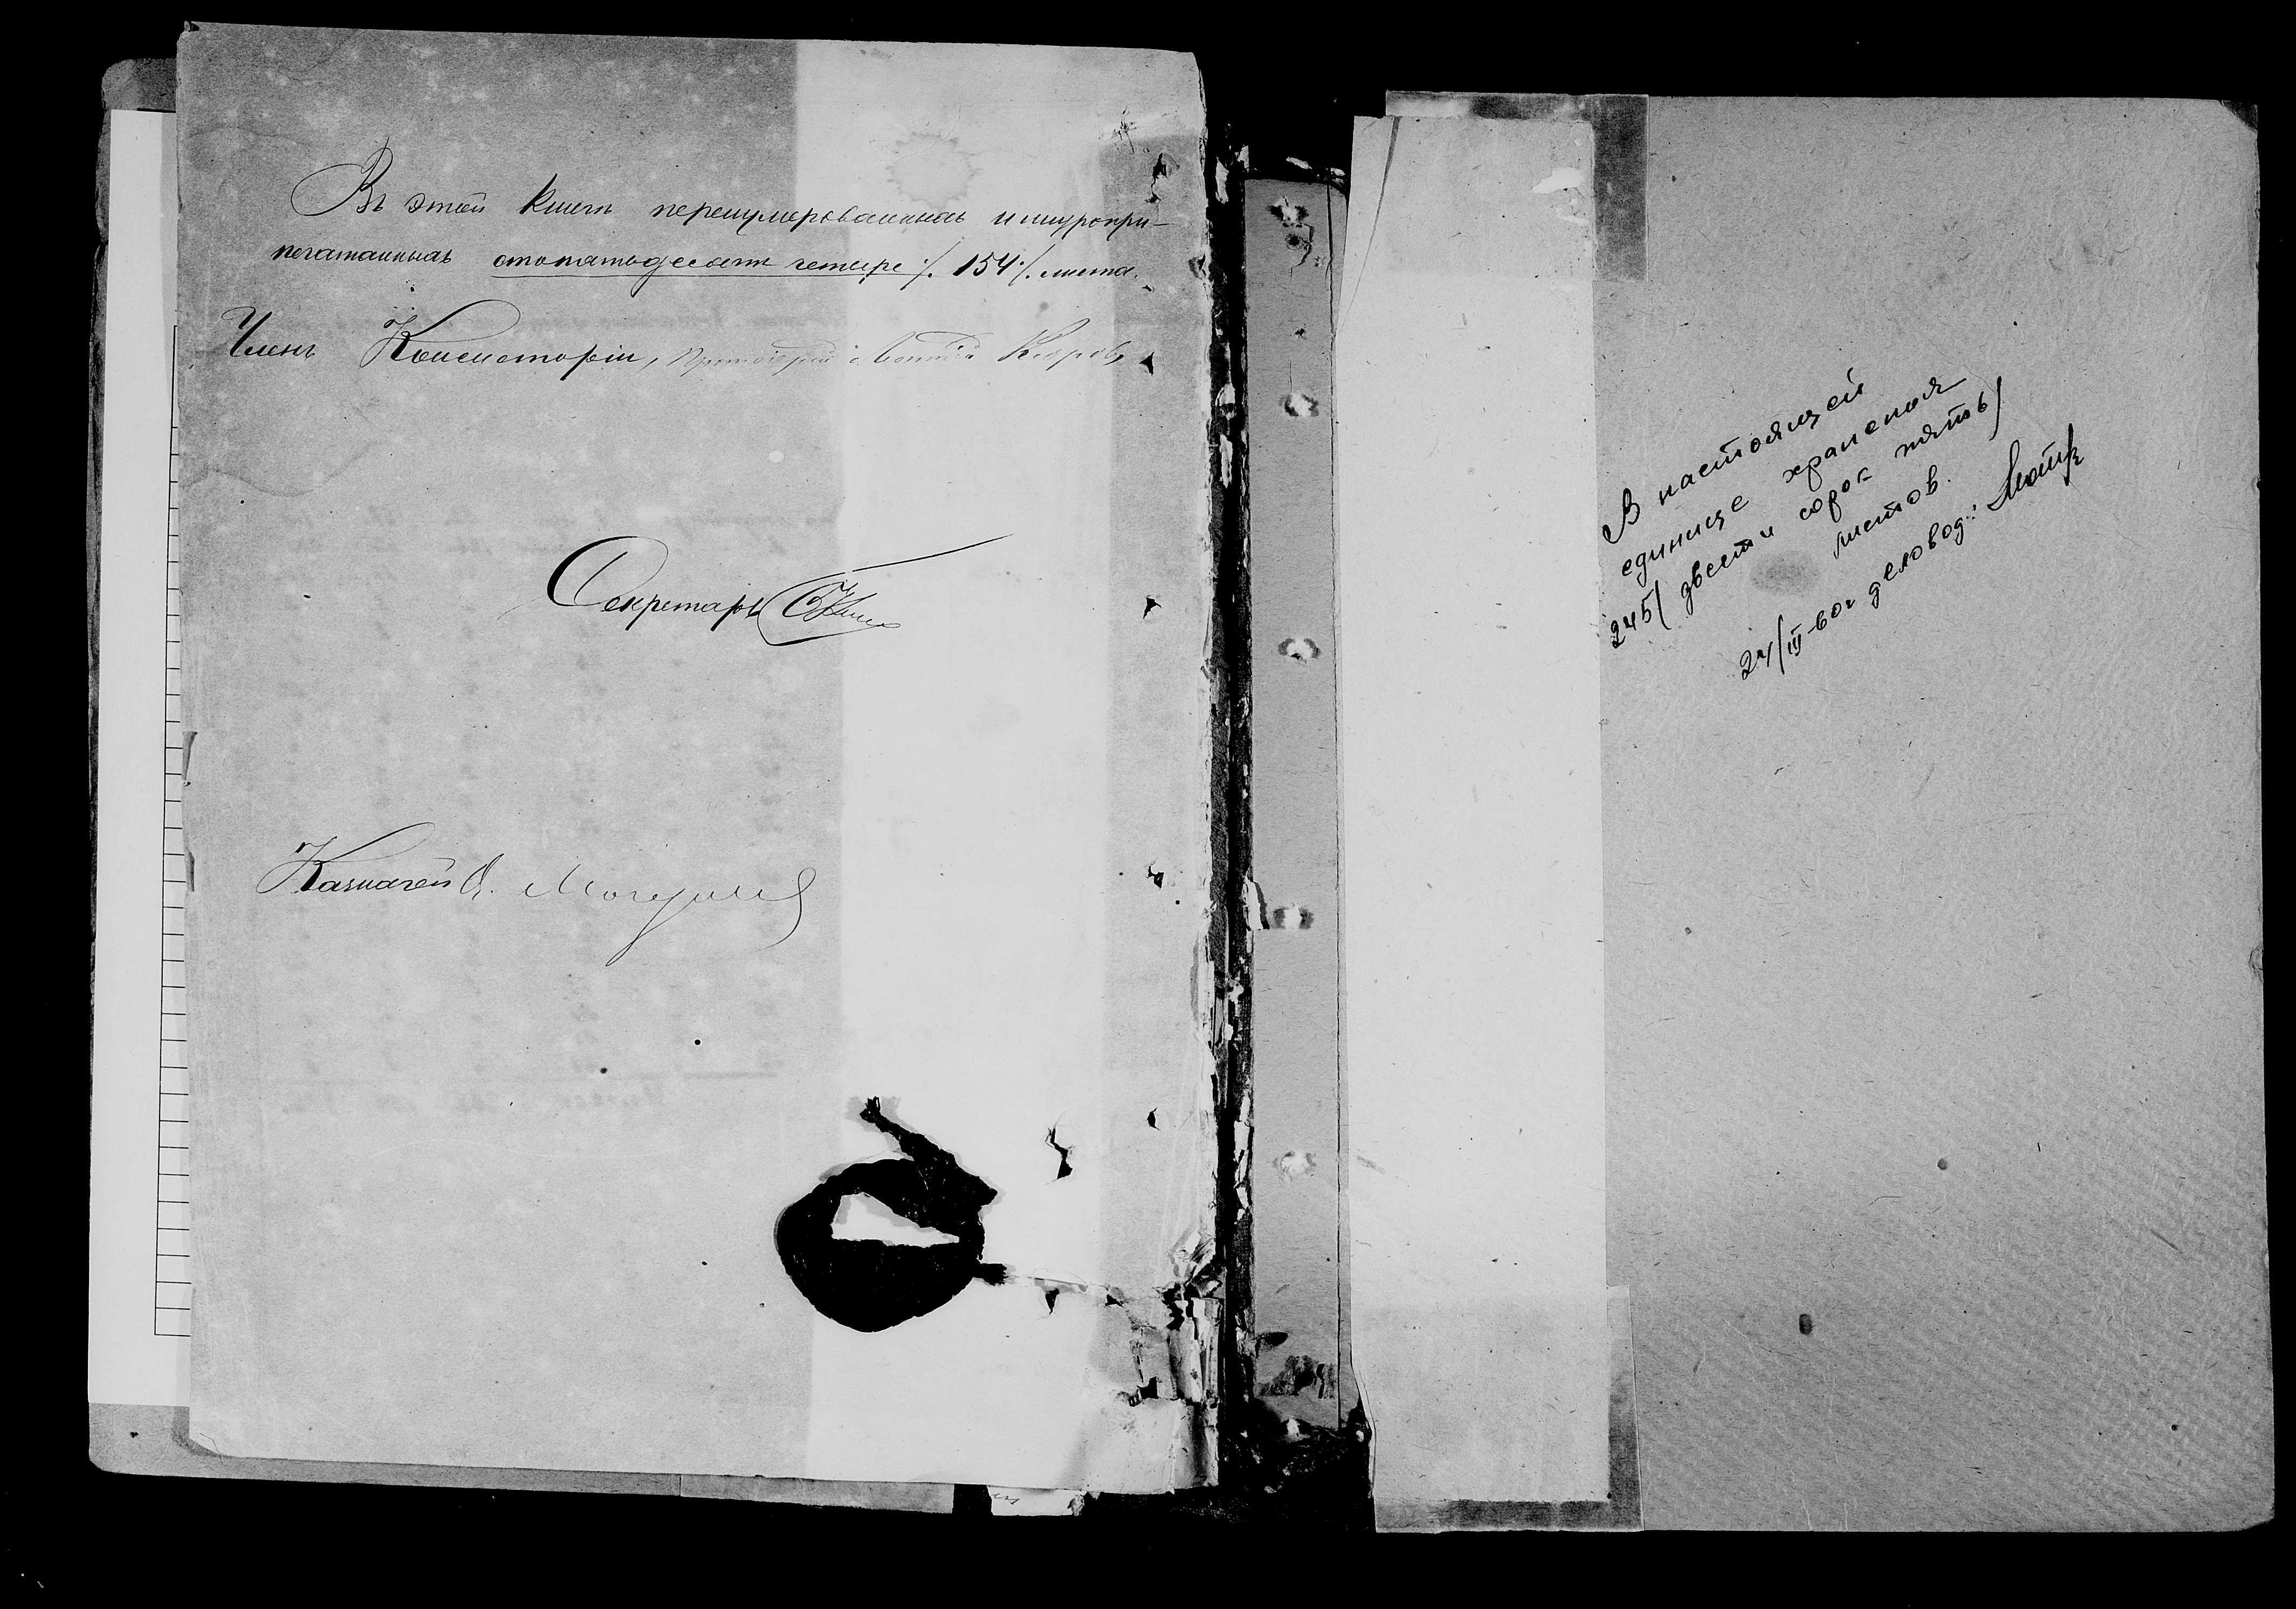 Въ этой книгѣ перенумерованныхъ и шнуропри-
печатанныхъ стопятьдесятъ четыре ./. 154 ./. листа.
Членъ Консисторіи, Протоіерей
Секретарь
Казначей
В настоящей
единице хранения
245/ двести сорок пять/
листов.
24/III